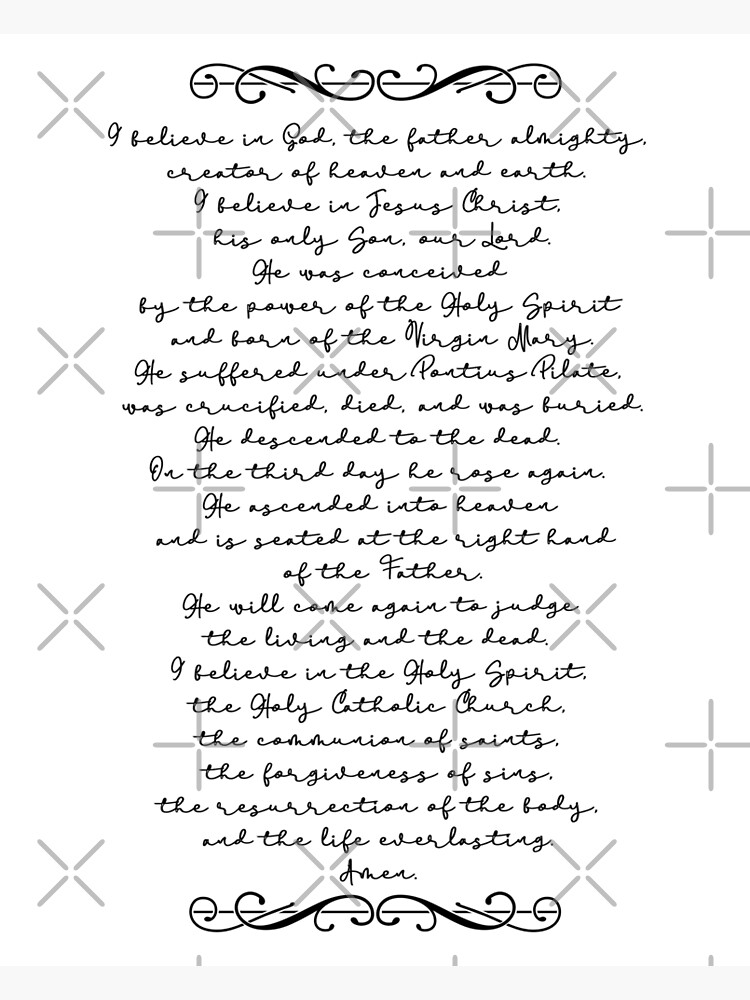 I believe in God, the father almighty,
creator of heaven and earth.
I believe in Jesus Christ,
his only Son, our Lord.
He was conceived
by the power of the Holy Spirit
and born of the Virgin Mary.
He suffered under Pontius Pilate,
was crucified, died, and was buried.
He descended to the dead.
On the third day he rose again.
He ascended into heaven
and is seated at the right hand
of the Father.
He will come again to judge
the living and the dead.
I believe in the Holy Spirit,
the Holy Catholic Church,
the communion of saints,
the forgiveness of sins,
the resurrection of the body,
and the life everlasting.
Amen.